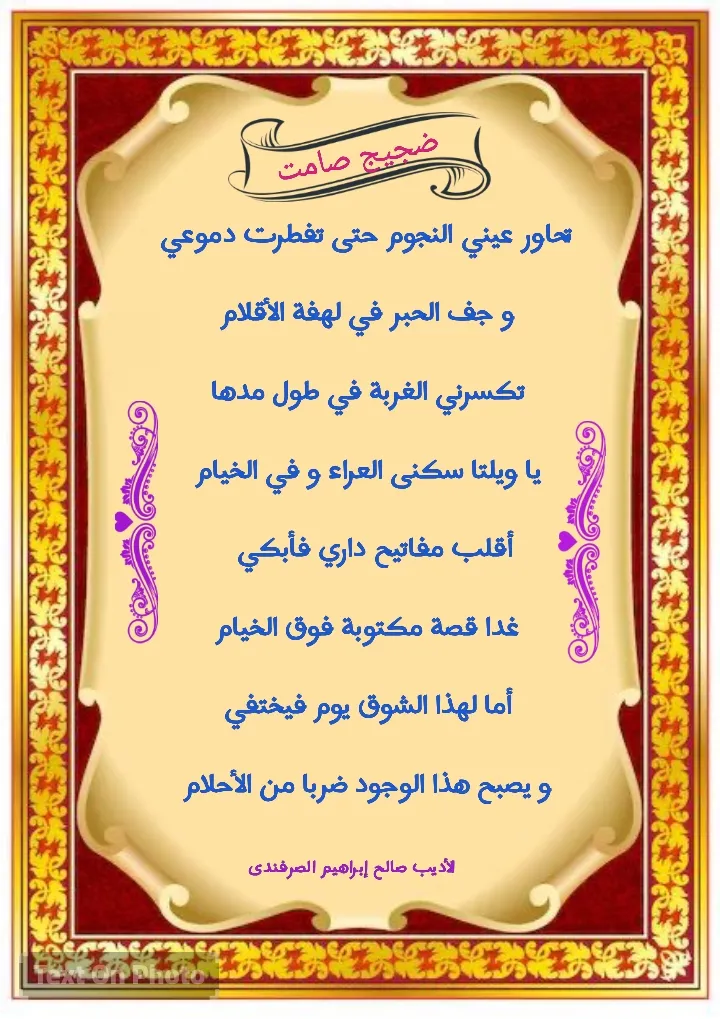 ضجيج صامت
تحاور عيني النجوم حتى تفطرت دموعي
و جف الحبر في لهفة الأقلام
تكسرني الغربة في طول مدها
يا ويلتا سكنى العراء و في الخيام
أقلب مفاتيح داري فأبكي
غدا قصة مكتوبة فوق الخيام
أما لهذا الشوق يوم فيختفي
و يصبح هذا الوجود ضربا من الأحلام
لأديب صالح إبراهيم الصرفندى
Text On Photo